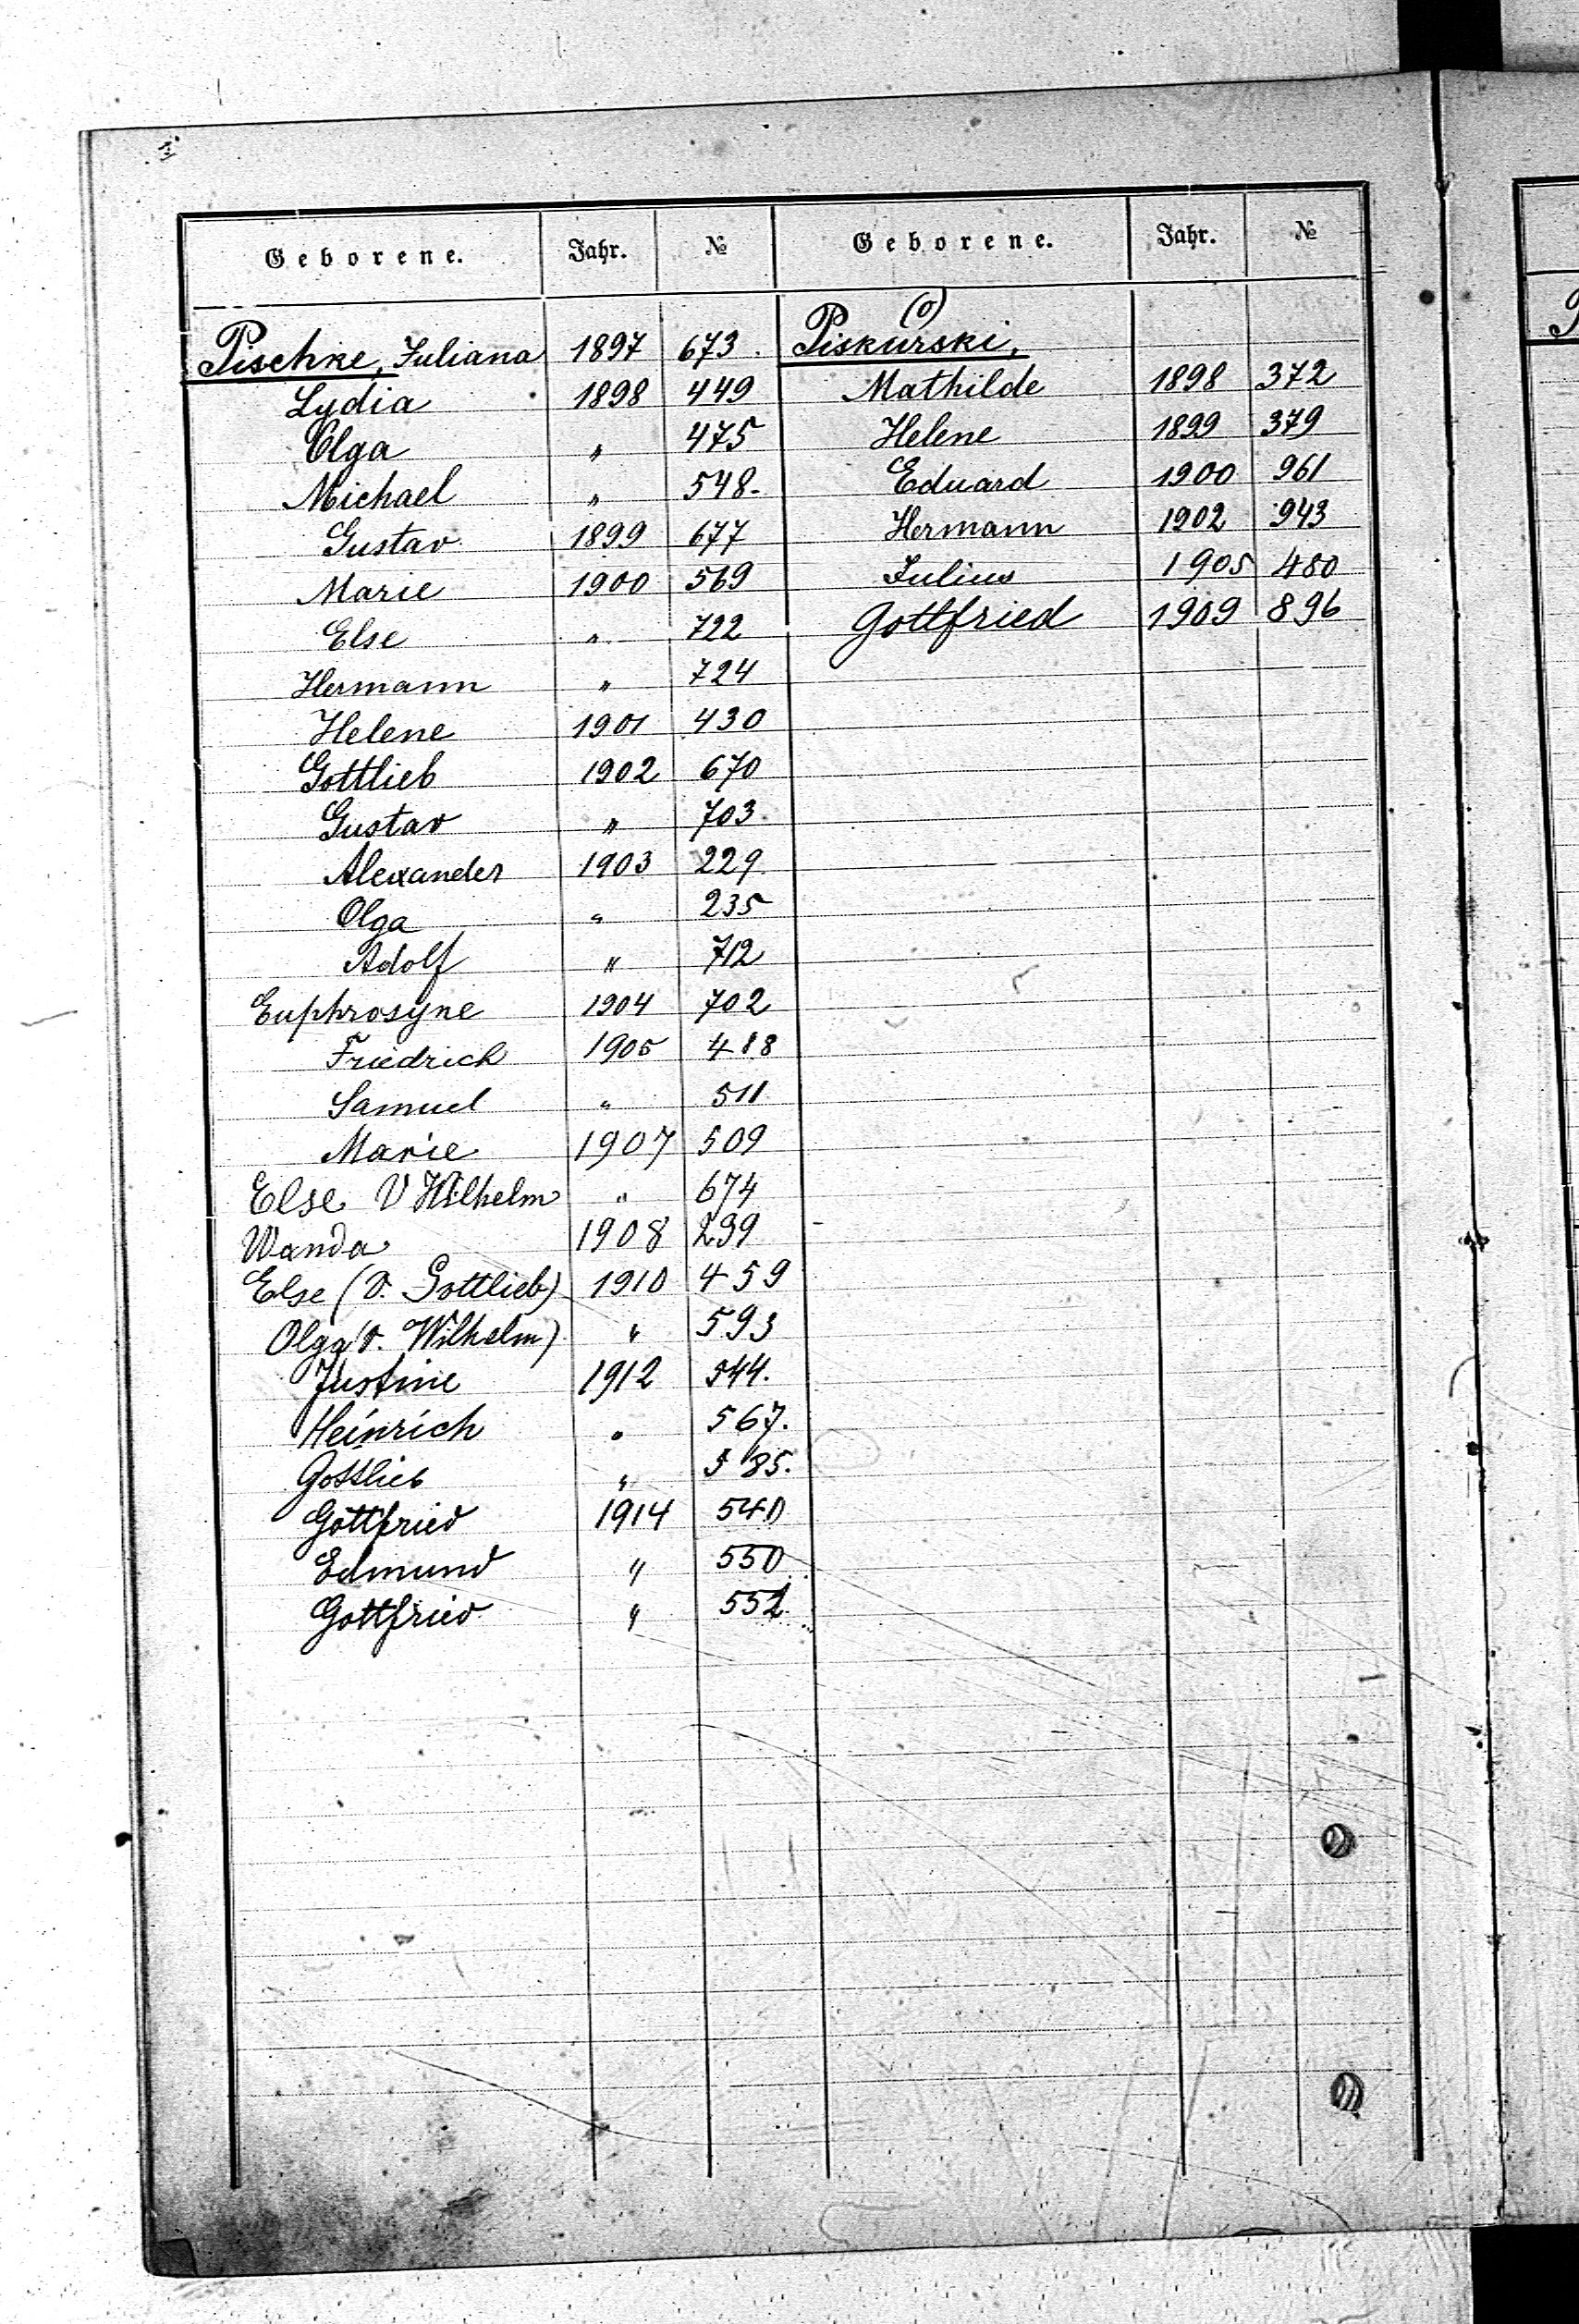 Geborene. Jahr. № Geborene. Jahr. №
Pischke, Juliana 1897 673.
Lydia 1898 449
Olga " 475
Michael " 548.
Gustav 1899 677
Marie 1900 569
Else " 722
Hermann " 724
Helene 1901 430
Gottlieb 1902 670
Gustav " 703.
Alexander 1903 229.
Olga " 235
Adolf " 712
Euphrosyne 1904 702
Friedrich 1905 488
Samuel " 511
Marie 1907 509
Else V Wilhelm " 674
Wanda 1908 239
Else (V. Gottlieb) 1910 459
Olga (V. Wilhelm) " 593
Justine 1912 544.
Heinrich " 567.
Gottlieb " 585.
Gottfried 1914 540
Edmund " 550
Gottfried " 552.
(o)
Piskurski,
Mathilde 1898 372
Helene 1899 379
Eduard 1900 961
Hermann 1902 943
Julius 1905 480
Gottfried 1909 896